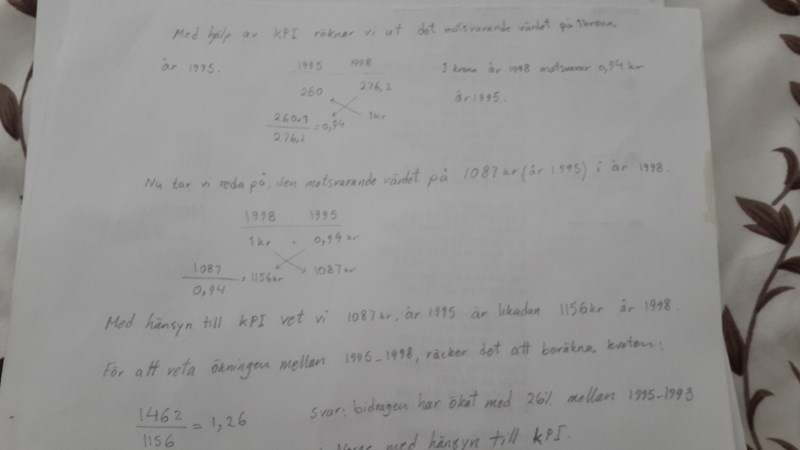 Med hjälp av KPI räknar vi ut det motsvarande värdet på 1 krona
år 1995.
1995 1998
260 276,2
1 kr
260.1 / 276,2 = 0,94
1 krona år 1998 motsvarar 0,94 kr
år 1995.
Nu tar vi reda på, den motsvarande värdet på 1087 kr (år 1995) i år 1998.
1998 1995
1 kr = 0,94 kr
1087 / 0,94 = 1156kr 1087 kr
Med hänsyn till KPI vet vi 1087 kr, år 1995 är likadan 1156kr år 1998.
För att veta ökningen mellan 1995-1998, räcker det att beräkna kvoten:
1462 / 1156 = 1,26
Svar: bidragen har ökat med 26% mellan 1995-1993
i Norge med hänsyn till KPI.